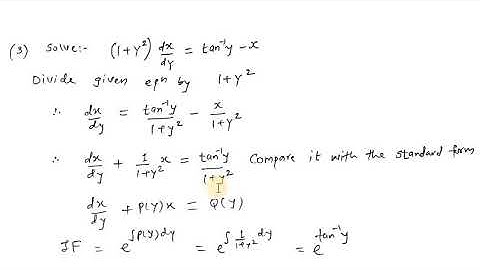 (3) Solve:- (1+y²) dx/dy = tan⁻¹y - x
Divide given eqn by 1+y²
∴ dx/dy = tan⁻¹y/1+y² - x/1+y²
∴ dx/dy + 1/1+y² x = tan⁻¹y/1+y² Compare it with the standard form
dx/dy + P(y)x = Q(y)
IF = e^∫P(y)dy = e^∫1/1+y² dy = e^tan⁻¹y